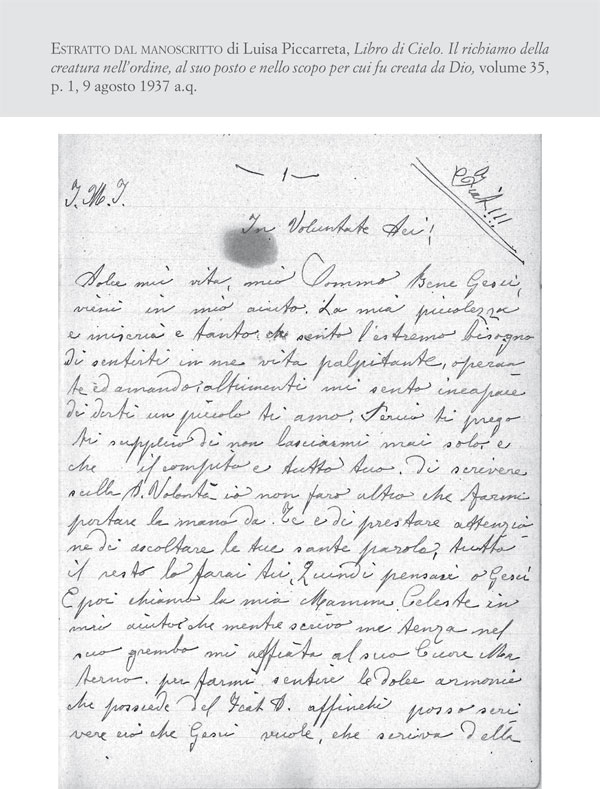 ESTRATTO DAL MANOSCRITTO di Luisa Piccarreta, Libro di Cielo. Il richiamo della
creatura nell'ordine, al suo posto e nello scopo per cui fu creata da Dio, volume 35,
p. 1, 9 agosto 1937 a.q.
— 1 —
J. M. J.
Fiat!!!
In Voluntate Dei!
Dolce mia vita, mio Sommo Bene Gesù,
vieni in mio aiuto. La mia piccolezza
e miseria e tanta che sento l'estremo bisogno
di sentirti in me vita palpitante, operan
te ed amando; altrimenti mi sento incapace
di dirti un piccolo ti amo. Perciò ti prego
ti supplico di non lasciarmi mai sola, e
che il compito e tutto tuo. di scrivere
sulla D. Volontà io non farò altro che farmi
portare la mano da Te e di prestare attenzio
ne di ascoltare le tue sante parole, tutto
il resto lo farai tu, Quindi pensaci o Gesù
E poi chiamo la mia Mamma Celeste in
mio aiuto che mentre scrivo me tenza nel
suo grembo mi affiata al suo Cuore Ma
terno. per farmi sentire le dolce armonie
che possiede del Fiat D. affinchè posso scri
vere ciò che Gesù vuole, che scriva della